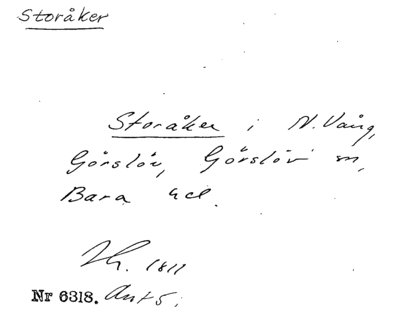 Storåker
Storåker i N. Vång,
Görslöv, Görslöv sn,
Bara hd.
1811
Nr 6318. Ant 5;